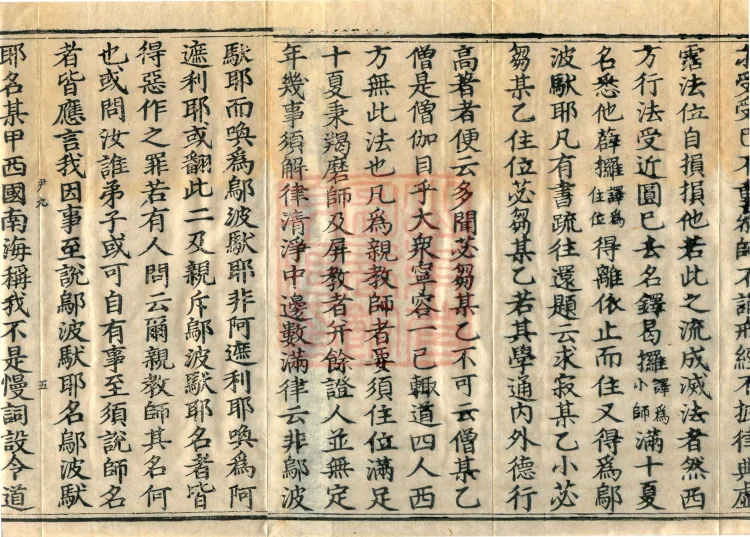 受已不重師不誦戒經不披律典虛
霑法位自損損他若此之流成滅法者然西
方行法受近圓已去名鐸曷攞譯爲小師滿十夏
名悉他薜攞譯爲住位得離依止而住又得爲鄔
波馱耶凡有書疏往還題云求寂某乙小苾
芻某乙住位苾芻某乙若其學通內外德行
高著者便云多聞苾芻某乙不可云僧某乙
僧是僧伽目乎大衆寧容一己輒道四人西
方無此法也凡爲親教師者要須住位滿足
十夏秉羯磨師及屏教者并餘證人並無定
年幾事須解律清淨中邊數滿律云非鄔波
馱耶而喚爲鄔波馱耶非阿遮利耶喚爲阿
遮利耶或翻此二及親斥鄔波馱耶名者皆
得惡作之罪若有人問云爾親教師其名何
也或問汝誰弟子或可自有事至須說師名
者皆應言我因事至說鄔波馱耶名鄔波馱
尹九 五
耶名某甲西國南海稱我不是慢詞設令道